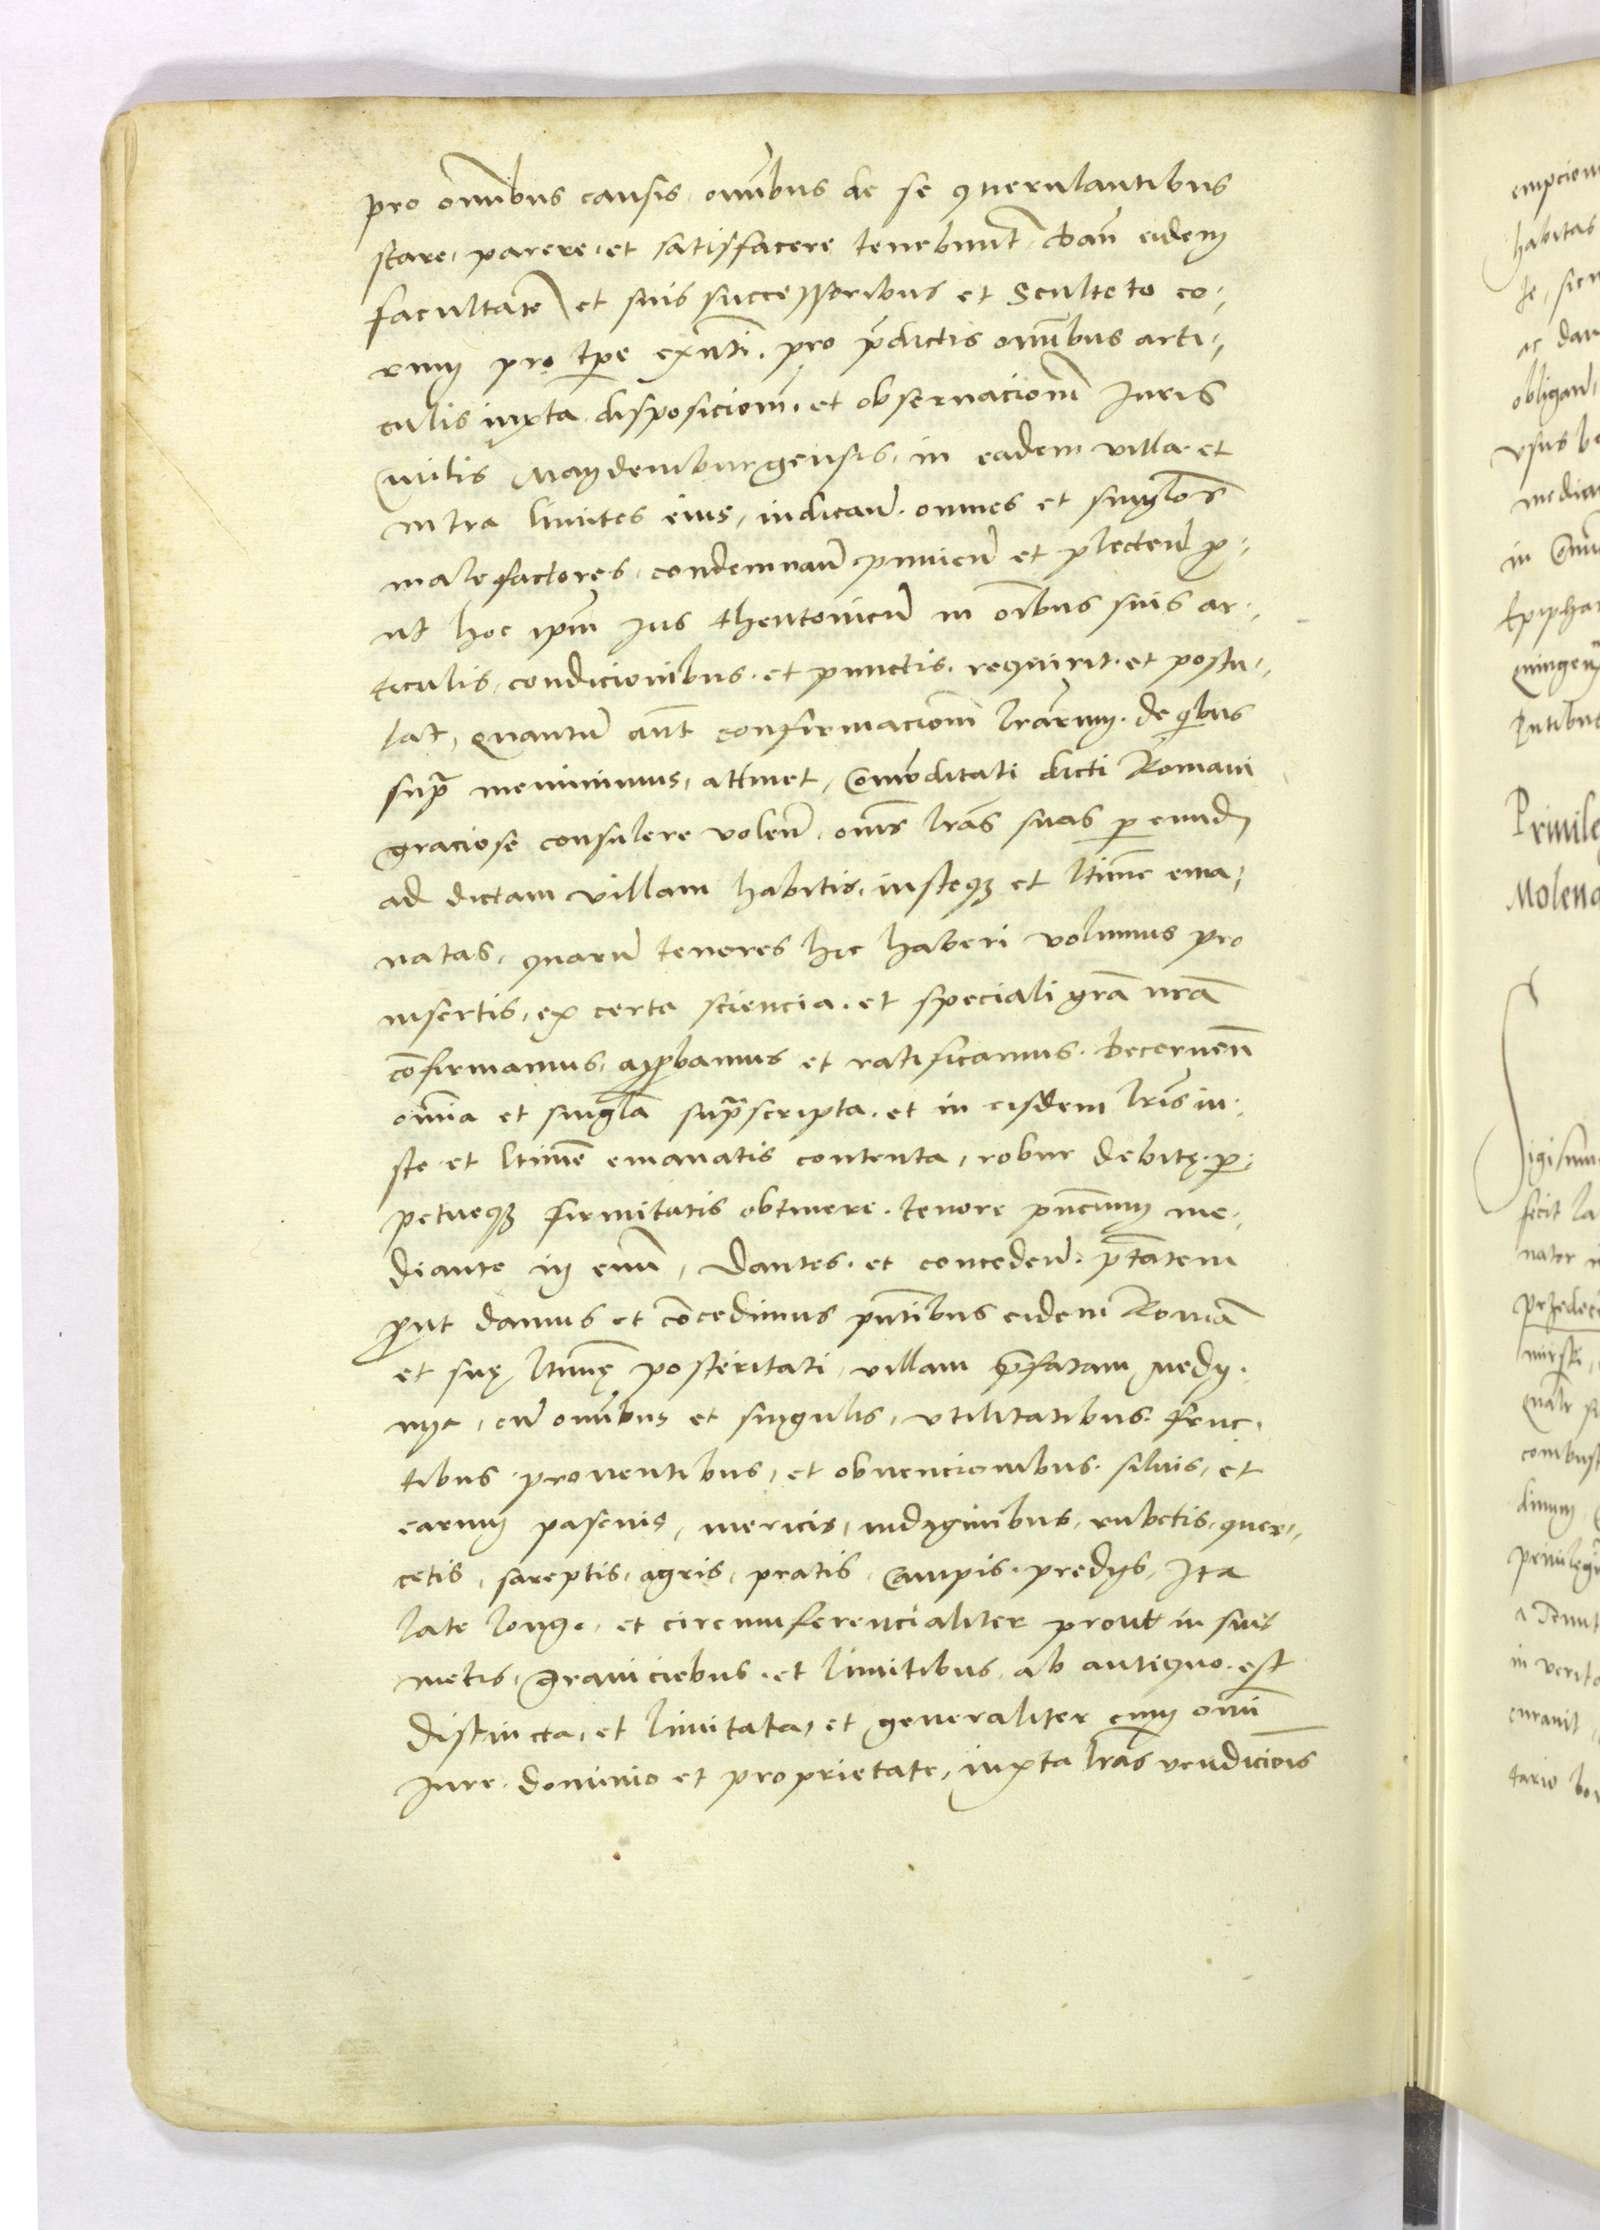 pro omībus causis omībus de se querulantibus
stare, parere, et satisfacere tenebunt̃. dañ eidem
facultatē et suis successoribus et Sculteto eo-
rum pro tp̄e exñti. pro p̄dictis omībus arti-
culis iuxta disposicionē et obseruacionē Iuris
Ciuilis Maydemburgensis, in eadem villa et
intra limites eius, iudicand̄ omnes et singlos
malefactores, condemnand̄ puniend̄ et plectend̄ p̱-
ut hoc ipm̄ Ius theutonicū in om̄bus suis ar-
ticulis, condicionibus et punctis requirit et postu-
lat, quantū aut̄ confirmacionē lrārum de qbus
supra meminimus, attinet, Commoditati dicti Romani
graciose consulere volen̄. omēs lrās suas p eundē
ad dictam villam habitis, iusteqȝ et ltime ema-
natas, quarū tenores hic haberi volumus pro
insertis, ex certa sciencia. et speciali grā nrā
cōfirmamus, approbamus et ratificamus. Decernen̄
omīa et singla suprascripta. et in eisdem lrīs iu-
ste et ltime emanatis contenta, robur debitę. p-
petueqȝ firmitatis obtinere. tenore pn̄cium me-
diante in euū, Dantes. et conceden̄. ptātem
prout damus et cōcedimus pn̄tibus eidem Romā
et suę ltimę posteritati, villam p̄fatam Nedy-
nye, cū omībus et singulis, vtilitatibus fruc-
tibus prouentibus, et obuencionibus siluis, et
earum pascuis, mericis, indaginibus, rubetis, quer-
cetis, sareptis, agris, pratis, Campis. predijs, Ita
late longe, et circumferencialiter prout in suis
metis, Graniciebus. et limitibus ab antiquo est
distincta, et limitata, et generaliter cum omī
Iure dominio et proprietate, iuxta lrās vendicionis
empcion
habitas
obligand
vsus
in
Epiphan
Priuile
Molend
Sigismun
fecit
combust
dimum
in verita
curauit
tario